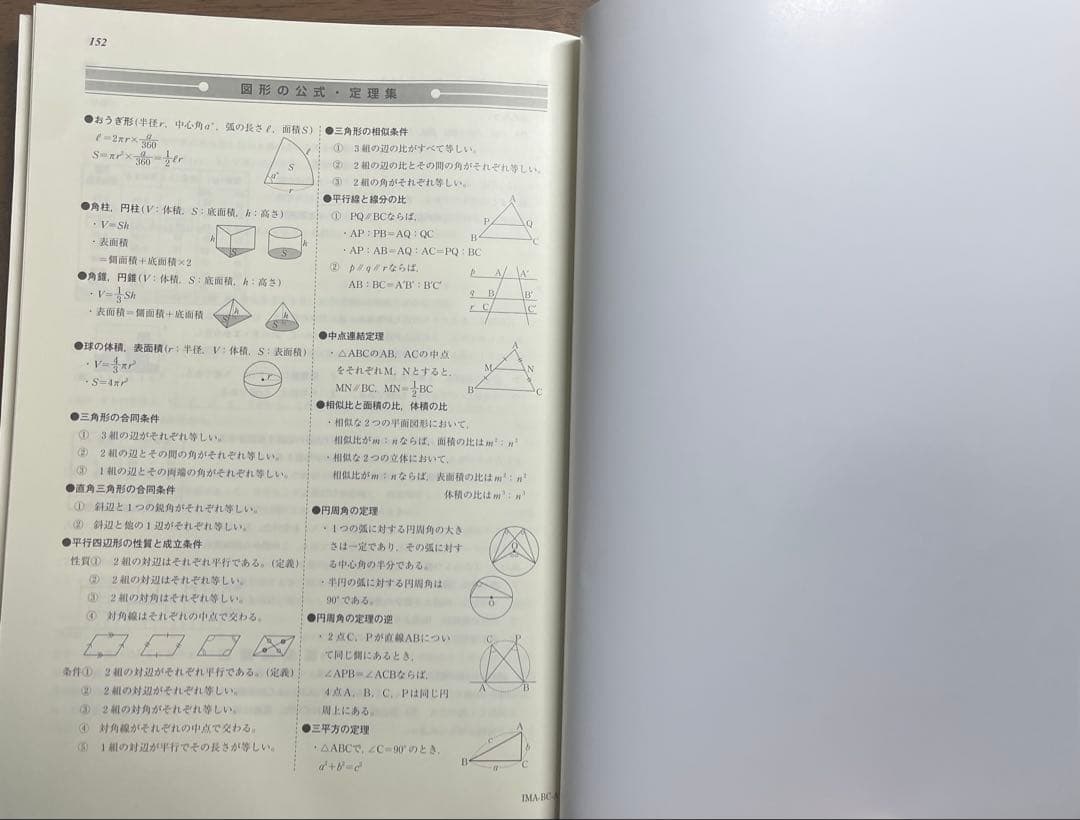 152
図形の公式・定理集
●おうぎ形(半径r，中心角a°，弧の長さℓ，面積S)
ℓ=2πr×a/360
S=πr²×a/360=1/2ℓr
S
ℓ
a°
r
●角柱，円柱(V：体積，S：底面積，h：高さ)
・V=Sh
・表面積
=側面積+底面積×2
h
S
S
h
●角錐，円錐(V：体積，S：底面積，h：高さ)
・V=1/3Sh
・表面積=側面積+底面積
h
S
h
S
●球の体積，表面積(r：半径，V：体積，S：表面積)
・V=4/3πr³
・S=4πr²
r
●三角形の合同条件
① 3組の辺がそれぞれ等しい。
② 2組の辺とその間の角がそれぞれ等しい。
③ 1組の辺とその両端の角がそれぞれ等しい。
●直角三角形の合同条件
① 斜辺と1つの鋭角がそれぞれ等しい。
② 斜辺と他の1辺がそれぞれ等しい。
●平行四辺形の性質と成立条件
性質① 2組の対辺はそれぞれ平行である。(定義)
② 2組の対辺はそれぞれ等しい。
③ 2組の対角はそれぞれ等しい。
④ 対角線はそれぞれの中点で交わる。
条件① 2組の対辺がそれぞれ平行である。(定義)
② 2組の対辺がそれぞれ等しい。
③ 2組の対角がそれぞれ等しい。
④ 対角線がそれぞれの中点で交わる。
⑤ 1組の対辺が平行でその長さが等しい。
●三角形の相似条件
① 3組の辺の比がすべて等しい。
② 2組の辺の比とその間の角がそれぞれ等しい。
③ 2組の角がそれぞれ等しい。
●平行線と線分の比
① PQ∥BCならば，
・AP：PB=AQ：QC
・AP：AB=AQ：AC=PQ：BC
A
P
Q
B
C
② p∥q∥rならば，
AB：BC=A′B′：B′C′
p A A′
q B B′
r C C′
●中点連結定理
・△ABCのAB，ACの中点
をそれぞれM，Nとすると，
MN∥BC，MN=1/2BC
A
M
N
B
C
●相似比と面積の比，体積の比
・相似な2つの平面図形において，
相似比がm：nならば，面積の比はm²：n²
・相似な2つの立体において，
相似比がm：nならば，表面積の比はm²：n²
体積の比はm³：n³
●円周角の定理
・1つの弧に対する円周角の大き
さは一定であり，その弧に対す
る中心角の半分である。
・半円の弧に対する円周角は
90°である。
O
O
●円周角の定理の逆
・2点C，Pが直線ABについ
て同じ側にあるとき，
∠APB=∠ACBならば，
4点A，B，C，Pは同じ円
周上にある。
C
P
A
B
●三平方の定理
・△ABCで，∠C=90°のとき，
a²+b²=c²
A
c
b
B
a
C
IMA-BC-A